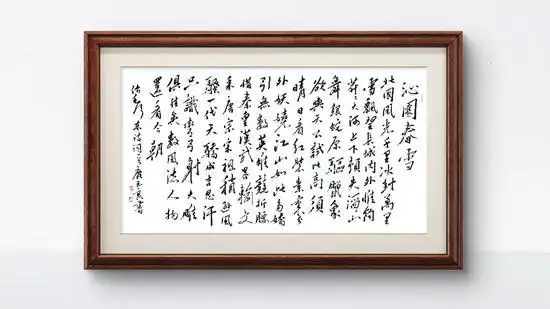 沁園春雪
北國風光千里冰封萬里
雪飄望長城内外惟餘
莽莽大河上下頓失滔滔山
舞銀蛇原驅臘象
欲與天公試比高須
晴日看紅裝素裹分
外妖嬈江山如此多嬌
引無數英雄競折腰
惜秦皇漢武略輸文
采唐宗宋祖稍遜風
騷一代天驕成吉思汗
只識彎弓射大雕
俱往矣數風流人物
還看今朝
東詩詞 書